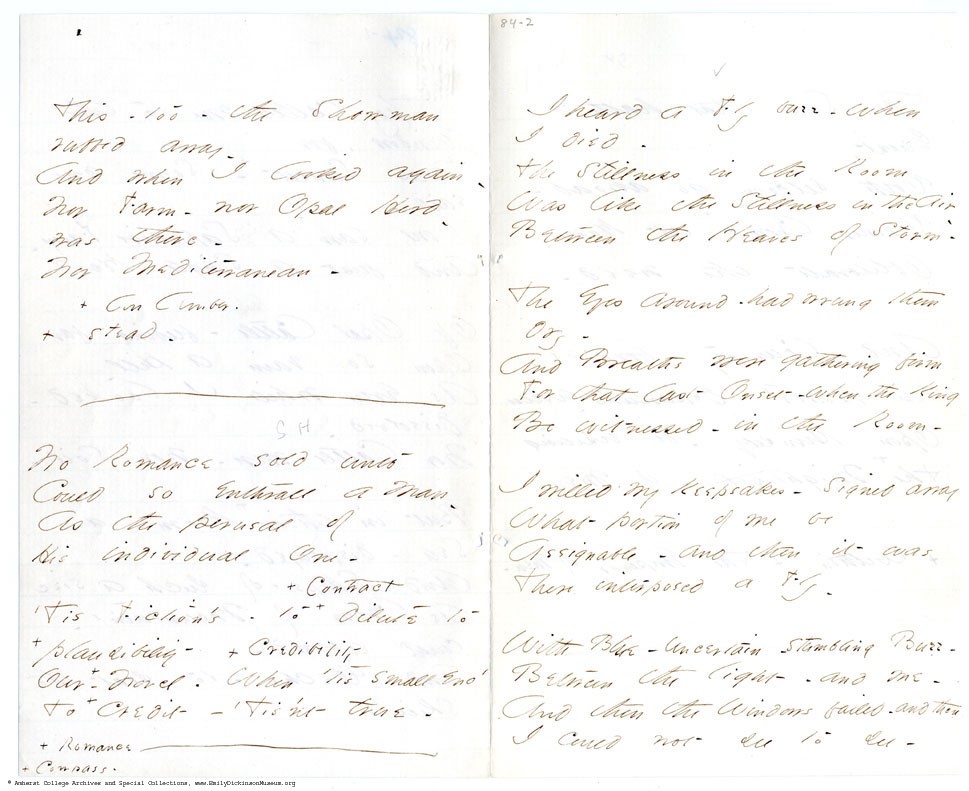 This - too - the Showman
rubbed away -
And when I looked again
Nor Farm - nor Opal Herd
was there -
Nor Mediterranean -
+ An Amber.
+ stead.
No Romance sold unto
Could so enthrall a Man -
As the perusal of
His individual One -
+ Contract
'Tis Fiction's - to + Dilute to
+ plausibility + Credibility
Our + Novel. When 'tis small eno'
To + Credit - 'Tis'nt true -
+ Romance
+ Compass.
84-2
I heard a Fly buzz - when
I died -
The Stillness in the Room
Was like the Stillness in the Air -
Between the Heaves of Storm -
The Eyes around - had wrung them
dry -
And Breaths were gathering firm
For that last Onset - when the King
Be witnessed - in the Room -
I willed my Keepsakes - Signed away
What portion of me be
Assignable - and then it was
There interposed a Fly -
With Blue - uncertain stumbling Buzz -
Between the light - and me -
And then the Windows failed - and then
I could not see to see -
© Amherst College Archives and Special Collections, www.EmilyDickinsonMuseum.org